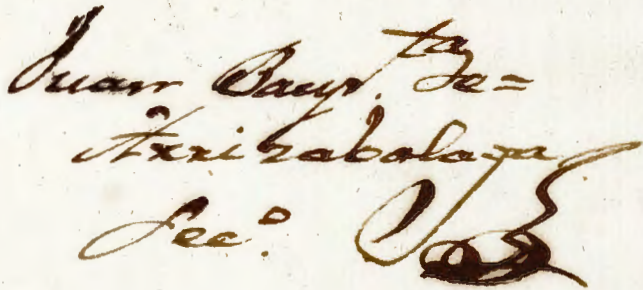 Juan Bayp.ta de=
Arrizabalaga
Sec.o